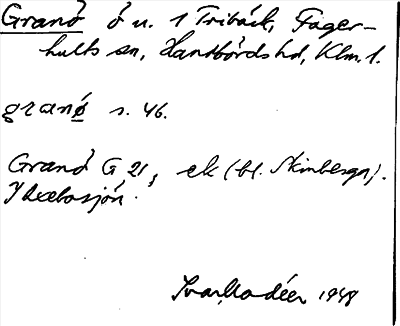 Granö ö u. 1 Tribäck, Fager-
hults sn, Handbörds hd, Klm. l.
granø s. 46.
Granö G 21, ek (bl. Skinbergen).
I Uvasjön.
Ivar Modéer 1948